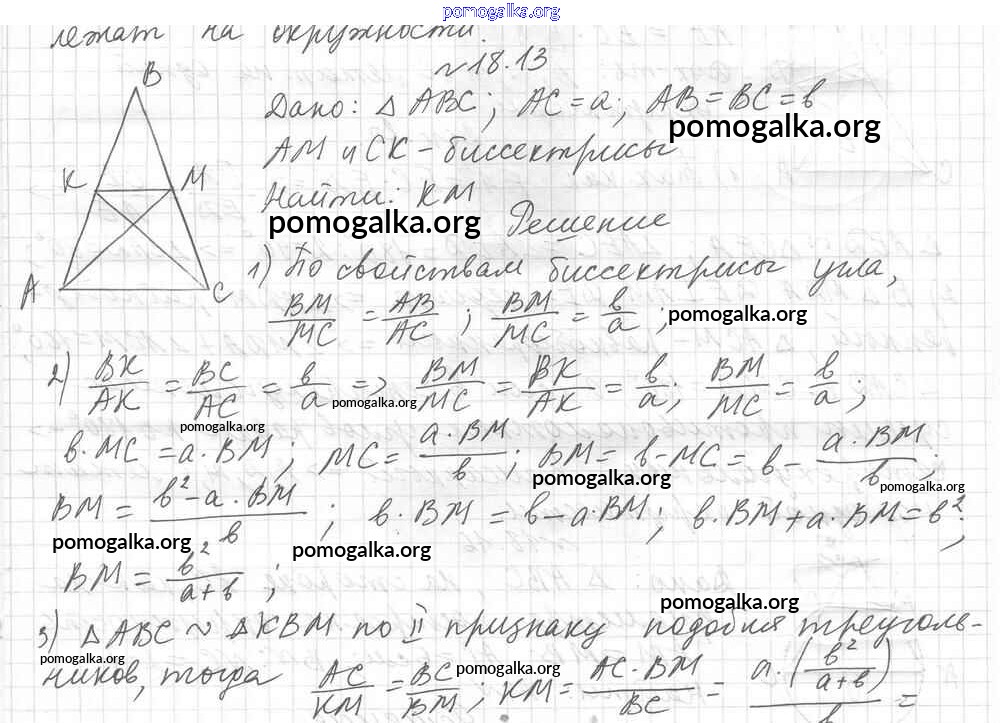 pomogalka.org
лежат на окружности.
~18.13
B
Дано: △ABC; AC = a; AB = BC = в
pomogalka.org
AM и CK – биссектрисы
K M
Найти: KM
pomogalka.org
Решение
A C
1) По свойствам биссектрисы угла,
BM/MC = AB/AC ; BM/MC = в/a ;
pomogalka.org
2) BK/AK = BC/AC = в/a => BM/MC = BK/AK = в/a; BM/MC = в/a ;
pomogalka.org
pomogalka.org
в·MC = a·BM; MC = a·BM/в ; BM = в–MC = в – a·BM/в ;
pomogalka.org
pomogalka.org
BM = в²–a·BM/в ; в·BM = в–a·BM; в·BM+a·BM = в²;
pomogalka.org
pomogalka.org
BM = в²/a+в ;
pomogalka.org
3) △ABC ~ △KBM по II признаку подобия треуголь-
pomogalka.org
ников, тогда AC/KM = BC/BM ; KM = AC·BM/BC = a·(в²/a+в)/в =
pomogalka.org